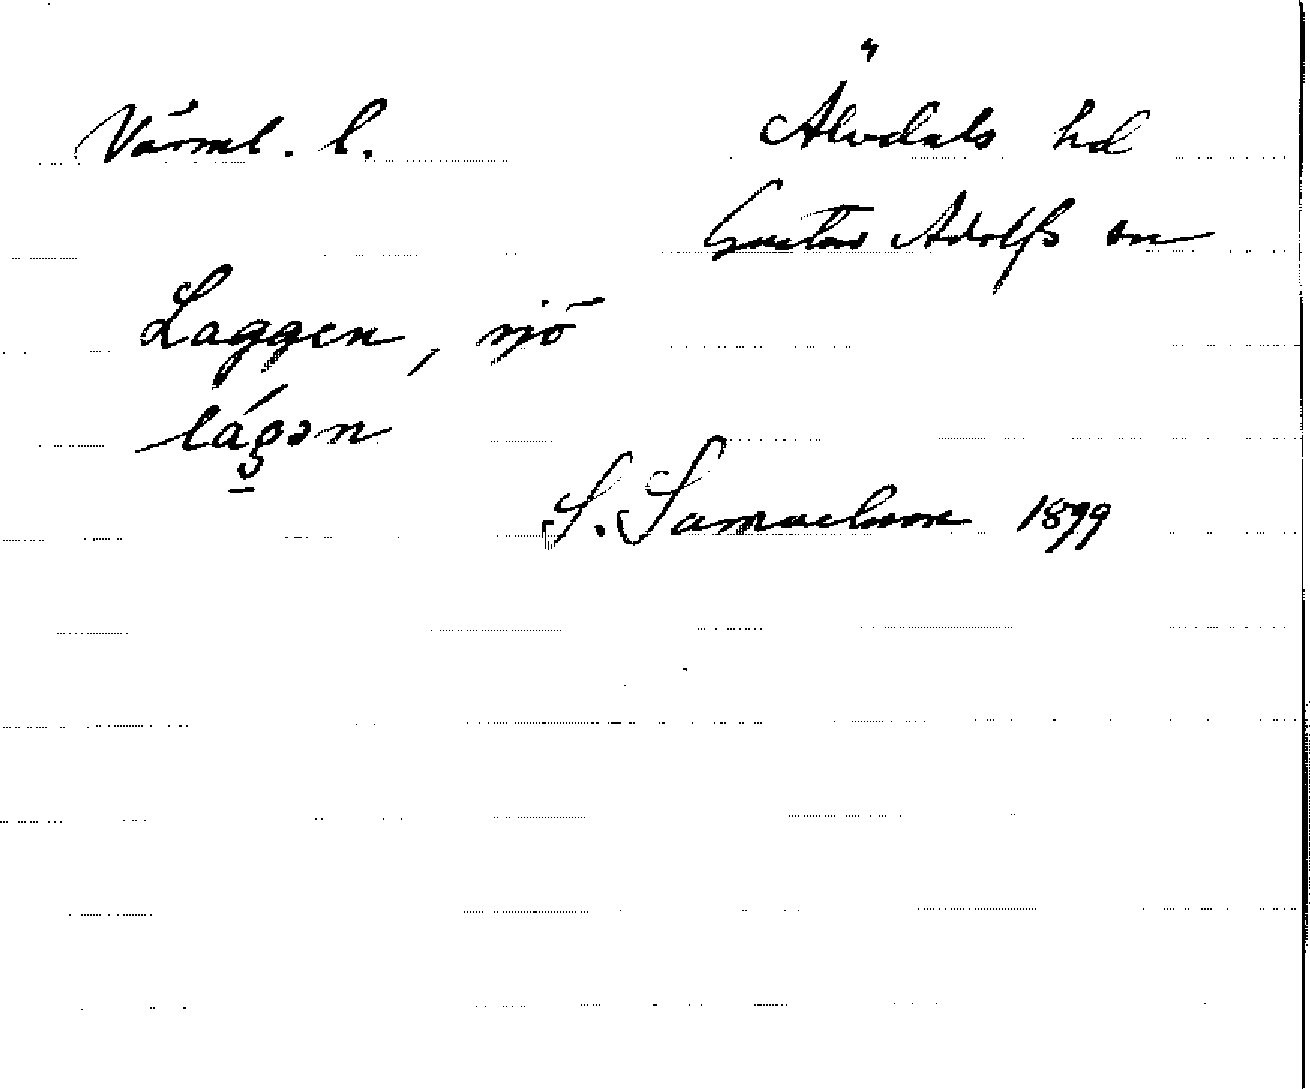 Värml. l. Älvdals hd
Gustav Adolfs sn
Laggen, sjö
lágən
S. Samuelsson 1899